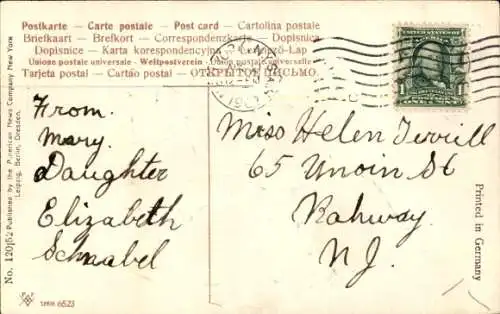 Postkarte - Carte postale - Post card - Cartolina postale
Briefkaart - Brefkort - Correspondenzkarte - Dopisnica
Dopisnice - Karta korespondencyjna - Levelező-Lap
Unione postale universale - Weltpostverein - Union postale universelle
Tarjeta postal - Cartão postal - ОТКРЫТОЕ ПИСЬМО.
UNITED STATES OF AMERICA
1 1
ONE CENT
From.
Mary.
Daughter
Elizabeth
Schnabel
Miss Helen Terrill
65 Unoin St
Rahway.
N.J.
No. 120|52 Published by the American News Company New York
Leipzig, Berlin, Dresden.
Printed in Germany
6523